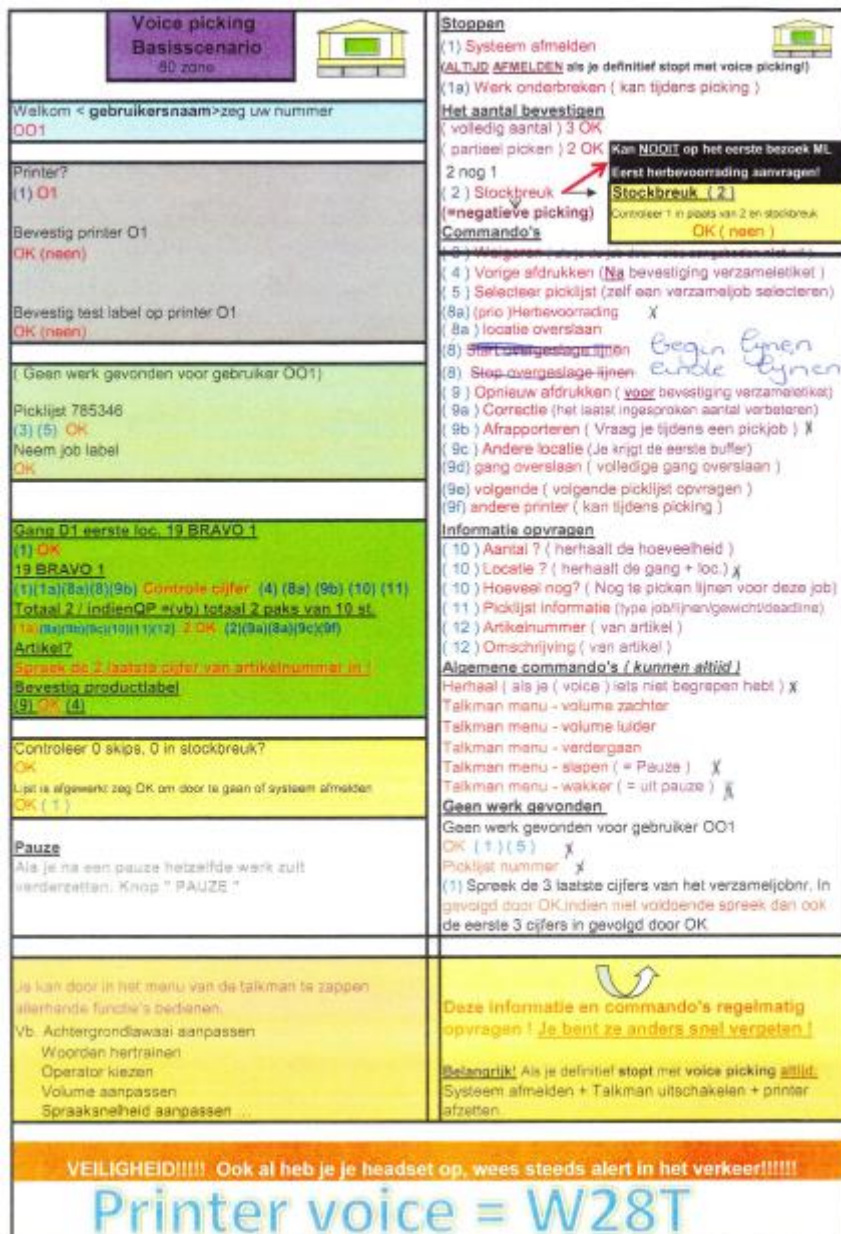 Voice picking
Basisscenario
80 zone
Welkom < gebruikersnaam>zeg uw nummer
OO1
Printer?
(1) O1
Bevestig printer O1
OK (neen)
Bevestig test label op printer O1
OK (neen)
( Geen werk gevonden voor gebruiker OO1)
Picklijst 785346
(3) (5) OK
Neem job label
OK
Gang D1 eerste loc. 19 BRAVO 1
(1) OK
19 BRAVO 1
(1)(1a)(8a)(8)(9b) Controle cijfer (4) (8a) (9b) (10) (11)
Totaal 2 / indienQP =(vb) totaal 2 paks van 10 st.
(1a)(8a)(9b)(9c)(10)(11)(12) 2 OK (2)(9a)(8a)(9c)(9f)
Artikel?
Spreek de 2 laatste cijfer van artikelnummer in !
Bevestig productlabel
(9) OK (4)
Controleer 0 skips, 0 in stockbreuk?
OK
Lijst is afgewerkt zeg OK om door te gaan of systeem afmelden
OK ( 1 )
Pauze
Als je na een pauze hetzelfde werk zult
verderzetten. Knop " PAUZE "
Je kan door in het menu van de talkman te zappen
allerhande functie's bedienen.
Vb. Achtergrondlawaai aanpassen
Woorden hertrainen
Operator kiezen
Volume aanpassen
Spraaksnelheid aanpassen ...
Stoppen
(1) Systeem afmelden
(ALTIJD AFMELDEN als je definitief stopt met voice picking!)
(1a) Werk onderbreken ( kan tijdens picking )
Het aantal bevestigen
( volledig aantal ) 3 OK
( partieel picken ) 2 OK
2 nog 1
( 2 ) Stockbreuk
(=negatieve picking)
Kan NOOIT op het eerste bezoek ML
Eerst herbevoorrading aanvragen!
Stockbreuk ( 2 )
Controleer 1 in plaats van 2 en stockbreuk
OK ( neen )
Commando's
( 3 ) Weigeren
( 4 ) Vorige afdrukken (Na bevestiging verzameletiket )
( 5 ) Selecteer picklijst (zelf een verzameljob selecteren)
(8a) (prio )Herbevoorrading x
( 8a ) locatie overslaan
(8) Start overgeslage lijnen begin lijnen
(8) Stop overgeslage lijnen einde lijnen
( 9 ) Opnieuw afdrukken ( voor bevestiging verzameletiket)
( 9a ) Correctie (het laatst ingesproken aantal verbeteren)
( 9b ) Afrapporteren ( Vraag je tijdens een pickjob ) x
( 9c ) Andere locatie (Je krijgt de eerste buffer)
(9d) gang overslaan ( volledige gang overslaan )
(9e) volgende ( volgende picklijst opvragen )
(9f) andere printer ( kan tijdens picking )
Informatie opvragen
( 10 ) Aantal ? ( herhaalt de hoeveelheid )
( 10 ) Locatie ? ( herhaalt de gang + loc.) x
( 10 ) Hoeveel nog? ( Nog te picken lijnen voor deze job)
( 11 ) Picklijst informatie (type job/lijnen/gewicht/deadline)
( 12 ) Artikelnummer ( van artikel )
( 12 ) Omschrijving ( van artikel )
Algemene commando's ( kunnen altijd )
Herhaal ( als je ( voice ) iets niet begrepen hebt ) x
Talkman menu - volume zachter
Talkman menu - volume luider
Talkman menu - verdergaan
Talkman menu - slapen ( = Pauze ) x
Talkman menu - wakker ( = uit pauze ) x
Geen werk gevonden
Geen werk gevonden voor gebruiker OO1
OK ( 1 ) ( 5 ) x
Picklijst nummer x
(1) Spreek de 3 laatste cijfers van het verzameljobnr. In
gevolgd door OK,indien niet voldoende spreek dan ook
de eerste 3 cijfers in gevolgd door OK
Deze informatie en commando's regelmatig
opvragen ! Je bent ze anders snel vergeten !
Belangrijk! Als je definitief stopt met voice picking altijd:
Systeem afmelden + Talkman uitschakelen + printer
afzetten
VEILIGHEID!!!!! Ook al heb je je headset op, wees steeds alert in het verkeer!!!!!!
Printer voice = W28T